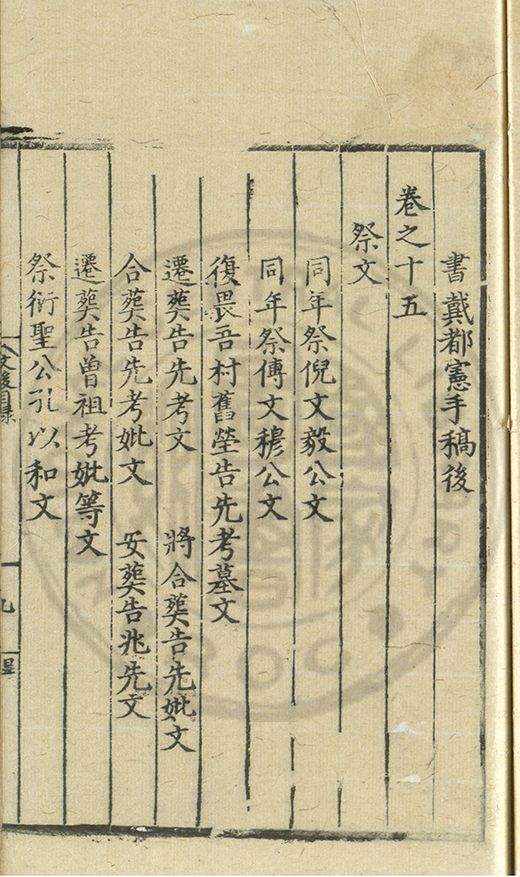 書戴都憲手稿後
卷之十五
祭文
同年祭倪文毅公文
同年祭傅文穆公文
復畏吾村舊塋告先考墓文
遷葬告先考文　將合葬告先妣文
合葬告先考妣文　安葬告兆先文
遷葬告曾祖考妣等文
祭衍聖公引以和文
九